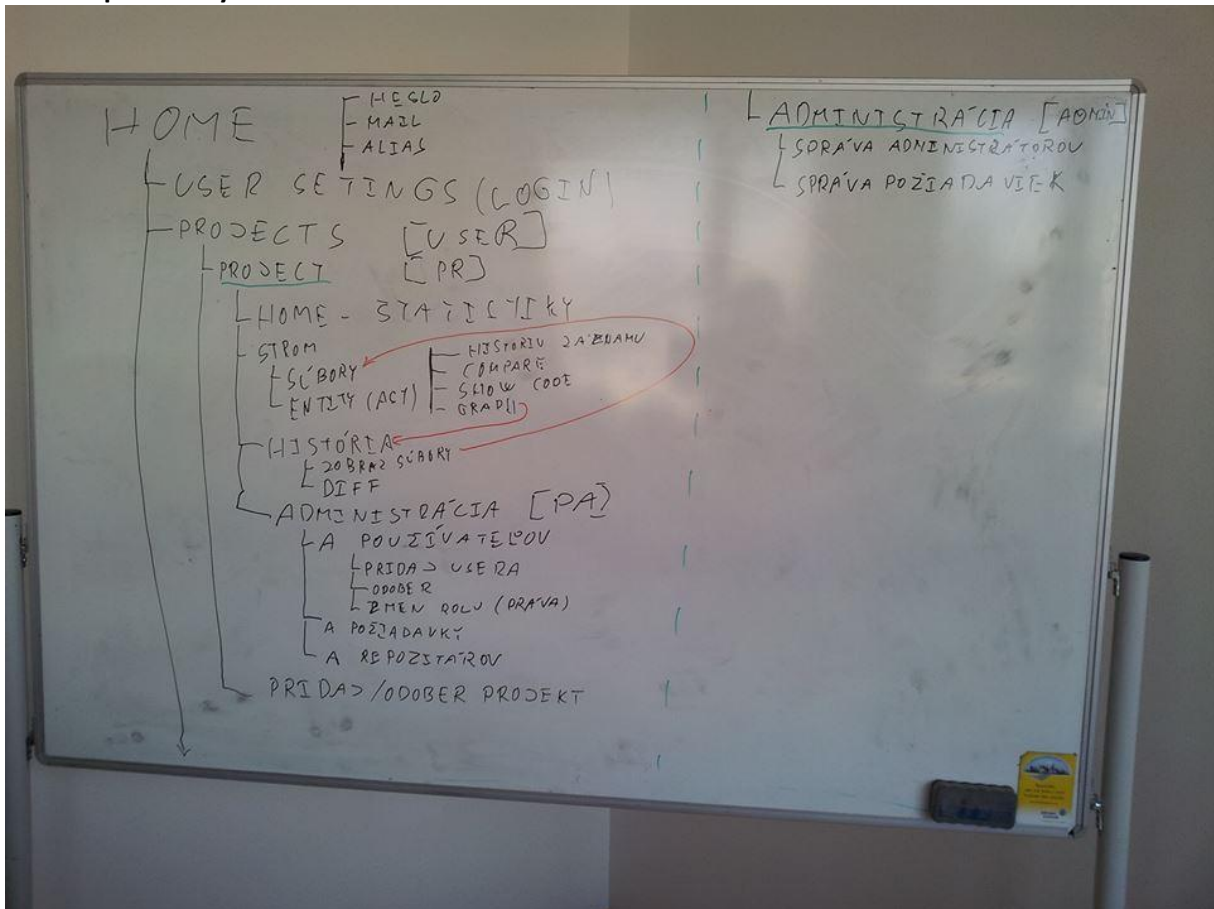 HOME
HESLO
MAIL
ALIAS
USER SETINGS (LOGIN)
PROJECTS [USER]
PROJECT [PR]
HOME - STATISTIKY
STROM
SÚBORY
ENTITY (ACT)
HISTORIU ZÁZNAMU
COMPARE
SHOW CODE
HISTÓRIA
ZOBRAZ SÚBORY
DIFF
ADMINISTRÁCIA [PA]
A POUŽÍVATEĽOV
PRIDAJ USERA
ODOBER
ZMEN ROLU (PRÁVA)
A POŽIADAVKY
A REPOZITÁROV
PRIDAJ/ODOBER PROJEKT
ADMINISTRÁCIA [ADMIN]
SPRÁVA ADMINISTRÁTOROV
SPRÁVA POŽIADAVIEK